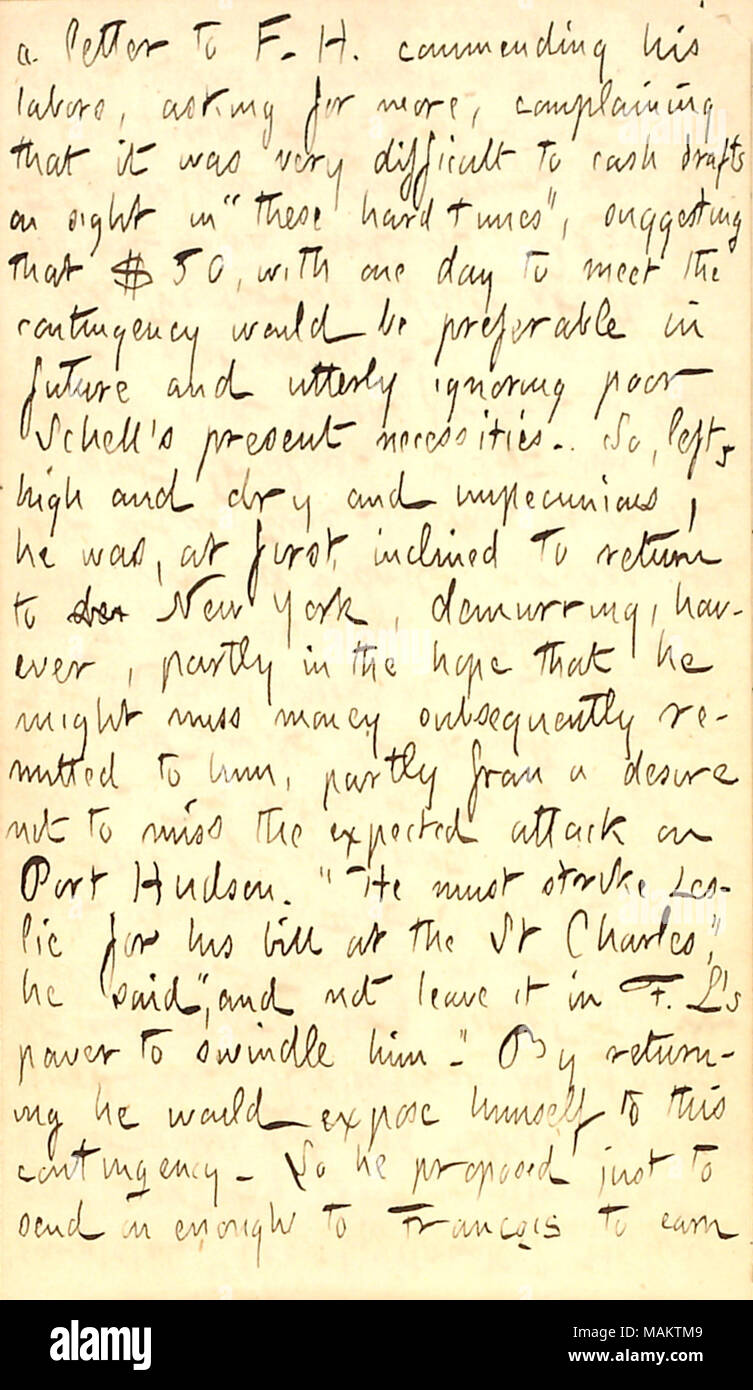 a letter to F. H. commending his
labors, asking for more, complaining
that it was very difficult to cash drafts
on sight in "these hard times", suggesting
that $50, with one day to meet the
contingency would be preferable in
future and utterly ignoring poor
Schell's present necessities. So, left,
high and dry and impecunious,
he was, at first, inclined to return
to New York, demurring, how-
ever, partly in the hope that he
might miss money subsequently re-
mitted to him, partly from a desire
not to miss the expected attack on
Port Hudson. "He must strike Les-
lie for his bill at the St Charles,"
he said, "and not leave it in F. L's
power to swindle him." By return-
ing he would expose himself to this
contingency. So he proposed just to
send on enough to François to earn
alamy
Image ID: MAKTM9
www.alamy.com